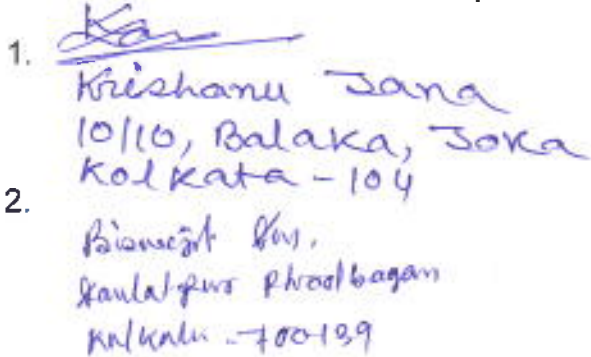 1.
Krishanu Jana
10/10, Balaka, Joka
Kolkata - 104
2.
Biswajit Das,
Daulatpur
Kolkata - 700139